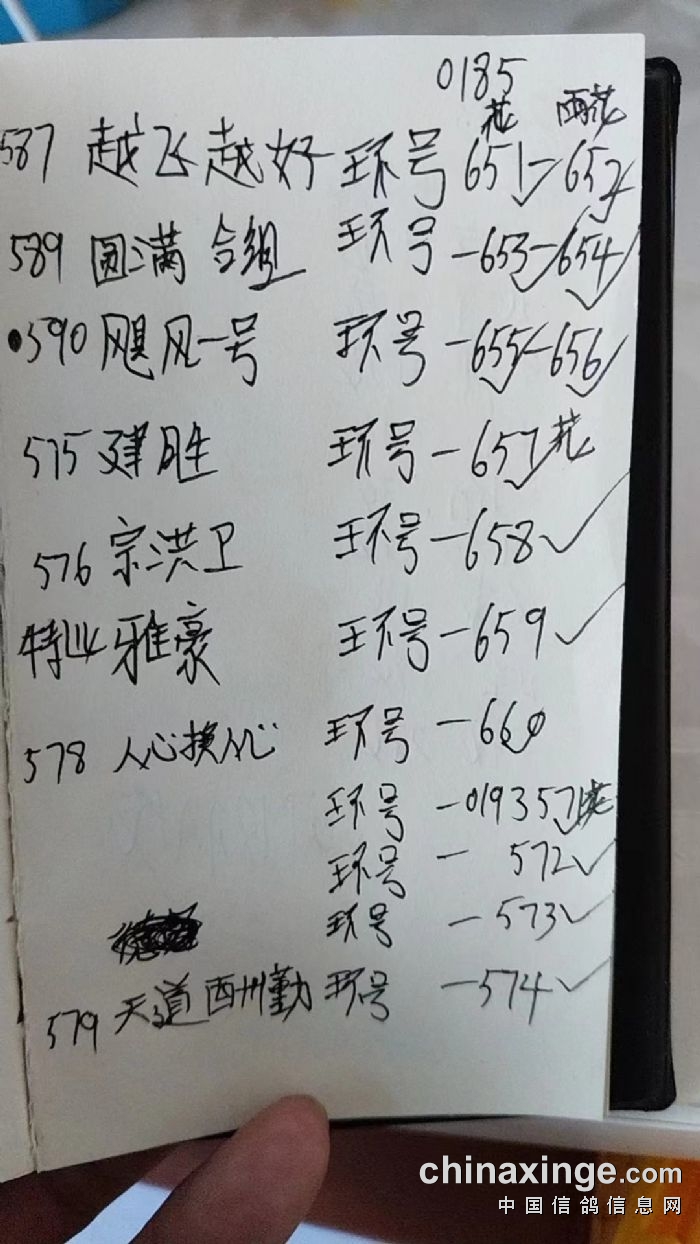 0185
花 雨花
587 越飞越好 环号 651-652
589 圆满合组 环号-653-654
590 飓风一号 环号-655-656
575 建胜 环号-657 花
576 宗洪卫 环号-658
特业 雅豪 环号-659
578 人心换人心 环号-660
环号-0193571
环号- 572
环号-573
579 天道酉州勤 环号-574
chinaxinge.com
中国信鸽信息网